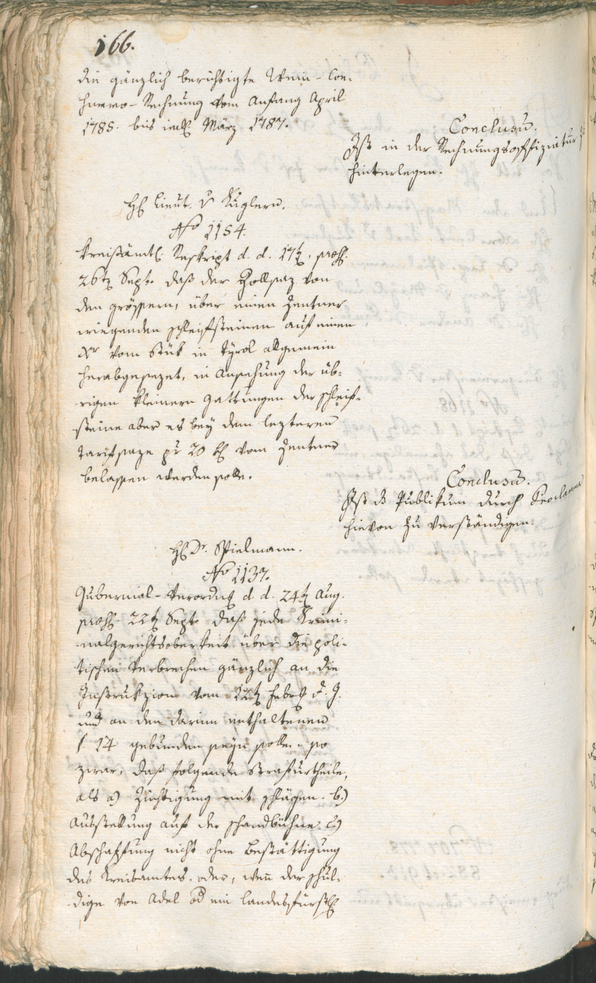 166.
die gänzlich berichtigte Wein-Con-
summo-Rechnung vom Anfang April
1785. bis incl. März 1787.
Conclusum.
Ist in der Rechnungsoffiziatur zu
hinterlegen.
H. Lieut. v. Kuglern.
No 1154.
Kreisämtl. Reskript d. d. 17t, praes.
26t Septr. daß der Zollsaz von
den größern, über einen Zentner
wiegenden Schleifsteinen auf einen
Xr vom Stük in Tyrol allgemein
herabgesezet, in Ansehung der üb-
rigen kleinern Gattungen der Schleif-
steine aber es bey dem lezteren
Tarifsaze pr 20 Xr vom Zentner
belassen werden solle.
Conclusum.
Ist das Publikum durch
hievon zu verständigen.
H. Dr. Spielmann.
No 1137.
Gubernial-Verordng d. d. 24t Aug.
praes. 22t Septr. daß jede Krimi-
nalgerichtsobrigkeit über die poli-
tischen Verbrechen gänzlich an die
Instrukzion vom 12t Febr. d. J.
und an den darinn enthaltenen
§ 14 gebunden seyn solle. so
zwar, daß folgende Strafurtheile,
als a) Züchtigung mit Schlägen. b)
Ausstellung auf der Schandbühne c)
Abschaffung nicht ohne Bestättigung
des Kreisamtes. oder, wenn der Schul-
dige von Adel od ein landesfürstl.